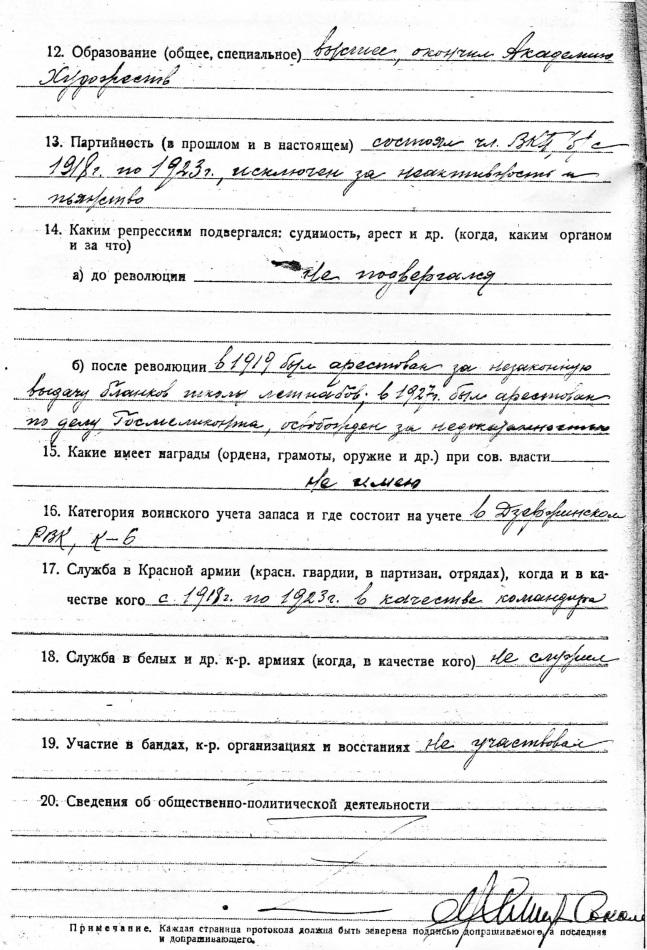 12. Образование (общее, специальное) высшее, окончил Академию
Художеств
13. Партийность (в прошлом и в настоящем) состоял чл. ВКП/б/ с
1918г. по 1923г., исключен за неактивность и
пьянство
14. Каким репрессиям подвергался: судимость, арест и др. (когда, каким органом
и за что)
а) до революции Не подвергался
б) после революции в 1919 был арестован за незаконную
выдачу бланков школы летнабов; в 1927г. был арестован
по делу Госмеликонта, освобожден за недоказанностью
15. Какие имеет награды (ордена, грамоты, оружие и др.) при сов. власти
Не имею
16. Категория воинского учета запаса и где состоит на учете в Дзержинском
РВК, К-6
17. Служба в Красной армии (красн. гвардии, в партизан. отрядах), когда и в ка-
честве кого с 1918г. по 1923г. в качестве командира
18. Служба в белых и др. к-р. армиях (когда, в качестве кого) не служил
19. Участие в бандах, к-р. организациях и восстаниях не участвовал
20. Сведения об общественно-политической деятельности
Примечание. Каждая страница протокола должна быть заверена подписью допрашиваемого, а последняя
и допрашивающего.